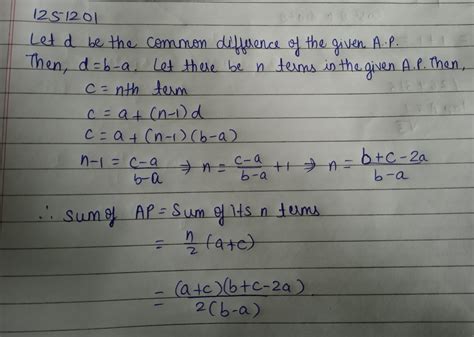 1251201
Let d be the common difference of the given A.P.
Then, d=b-a. Let there be n terms in the given A.P. Then,
c = nth term
c = a + (n-1)d
c = a + (n-1)(b-a)
n-1 = c-a/b-a ⇒ n = c-a/b-a + 1 ⇒ n = b+c-2a/b-a
∴ sum of AP = Sum of its n terms
= n/2 (a+c)
= (a+c)(b+c-2a)/2(b-a)